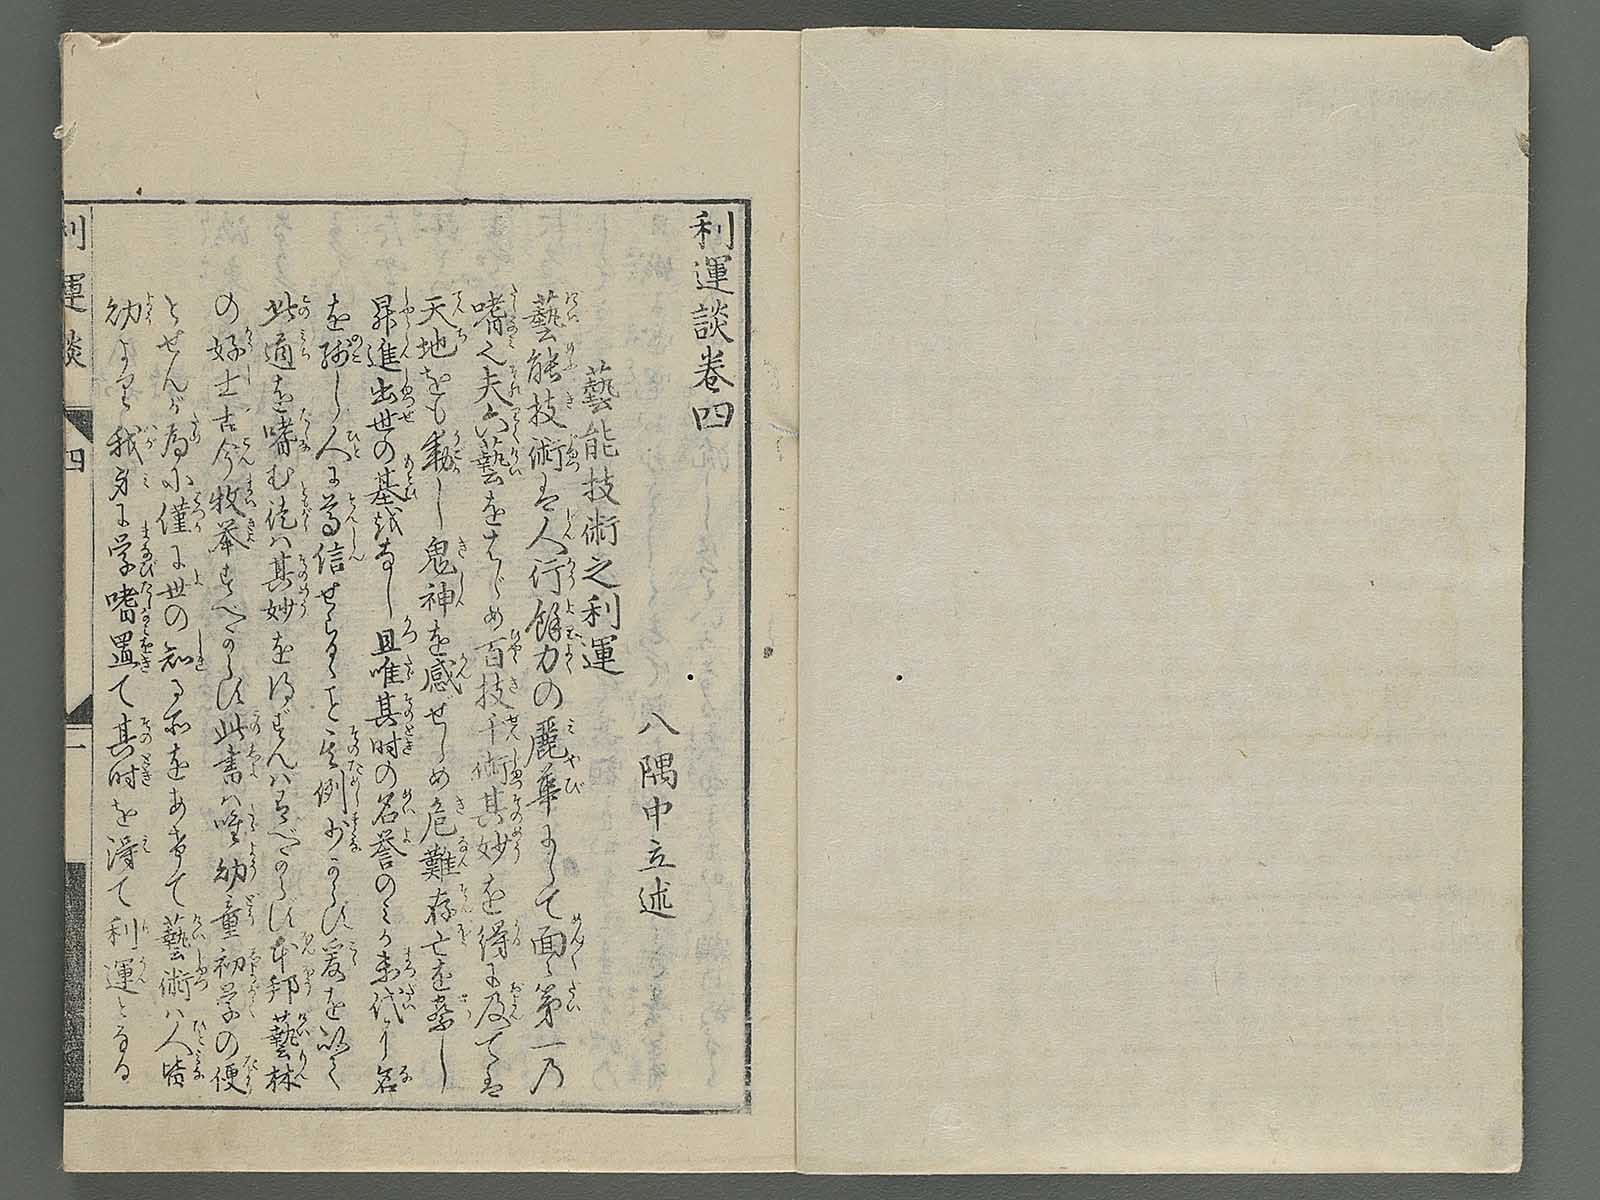 利運談巻四
八隅中立述
藝能技術之利運
藝能技術は人行餘力の麗華にして面々第一乃
嗜之夫六藝をはじめ百技千術其妙を得に及ては
天地をも動し鬼神を感ぜしめ危難存亡を察し
昇進出世の基趾なし且唯其时の名誉のミか末代に名
を残し人に尊信せらるゝこと其例少からず爰を以て
此道を嗜む徒ハ其妙を得ずんハ有べからず本邦藝林
の好士古今牧挙すべからず此書ハ唯幼童初学の便
とせんが為に僅に世の知る所をあげて藝術ハ人皆
幼より我身に学嗜置て其时を得て利運となる
利運談 四 一